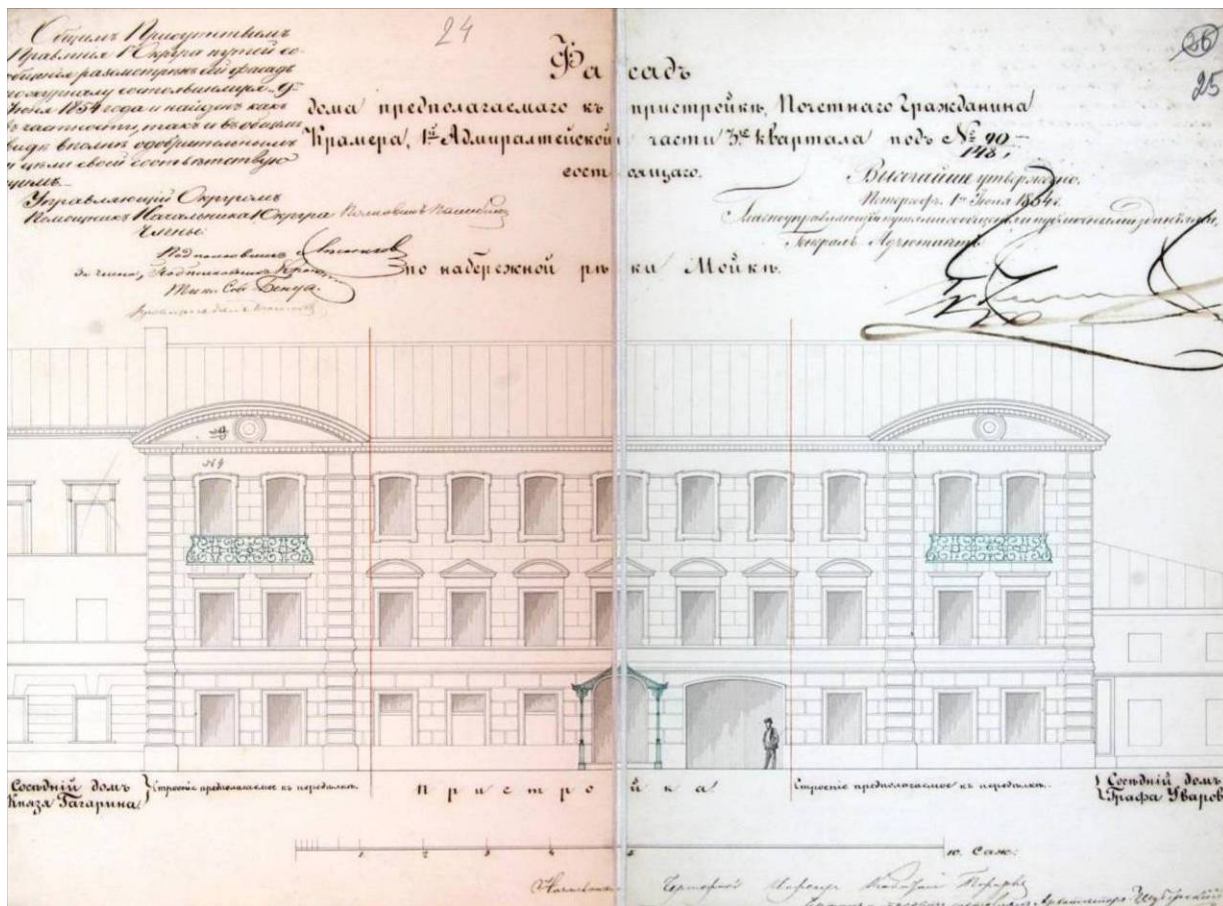 24
26
25
Общимъ Присутствіемъ
Правленія 1 Округа путей со-
общенія разсмотрѣнъ сей фасадъ
по журналу состоявшемуся 9
Іюня 1854 года и найденъ какъ
въ частности, такъ и въ общемъ
видѣ вполнѣ одобрительнымъ
и цѣли своей соотвѣтствую
щимъ.
Управляющій Округомъ
Помощникъ Начальника 1 Округа Полковникъ
Члены:
Подполковникъ
за члена, Подполковникъ
Бенуа.
Фасадъ
дома предполагаемаго къ пристройкѣ, Почетнаго Гражданина
Крамера, 1й Адмиралтейской части 3го квартала подъ № 90
148,
состоящаго.
Высочайше утверждено.
Петергофъ. 1854.
Главноуправляющій путями сообщенія и публичными зданіями,
Генералъ Адъютантъ
по набережной рѣки Мойкѣ.
№9
Сосѣдній домъ
Князя Гагарина
Строеніе предполагаемое къ передѣлкѣ.
Пристройка
Строеніе предполагаемое къ передѣлкѣ.
Сосѣдній домъ
Графа Уваров
1 2 3 4 5 10. Саж:
Архитекторъ